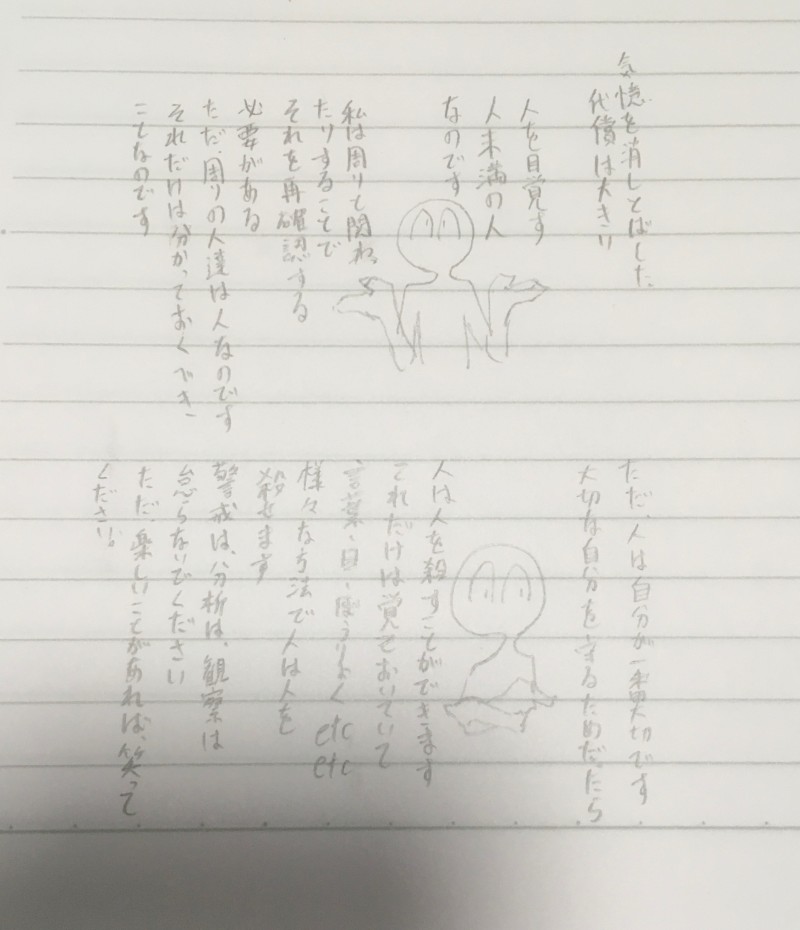 気憶を消しとばした
代償は大きい
人を目覚す
人未満の人
なのです
私は周りと関わっ
たりすることで
それを再確認する
必要がある
ただ、周りの人達は人なのです
それだけは分かっておくべき
ことなのです
ただ、人は自分が一番大切です
大切な自分を守るためだったら
人は人を殺すことができます
これだけは覚えておいていて
言葉・目・ぼうりょく etc etc
様々な方法で人は人を
殺せます
警戒は、分析は、観察は
怠らないでください
ただ、楽しいことがあれば、笑って
ください。